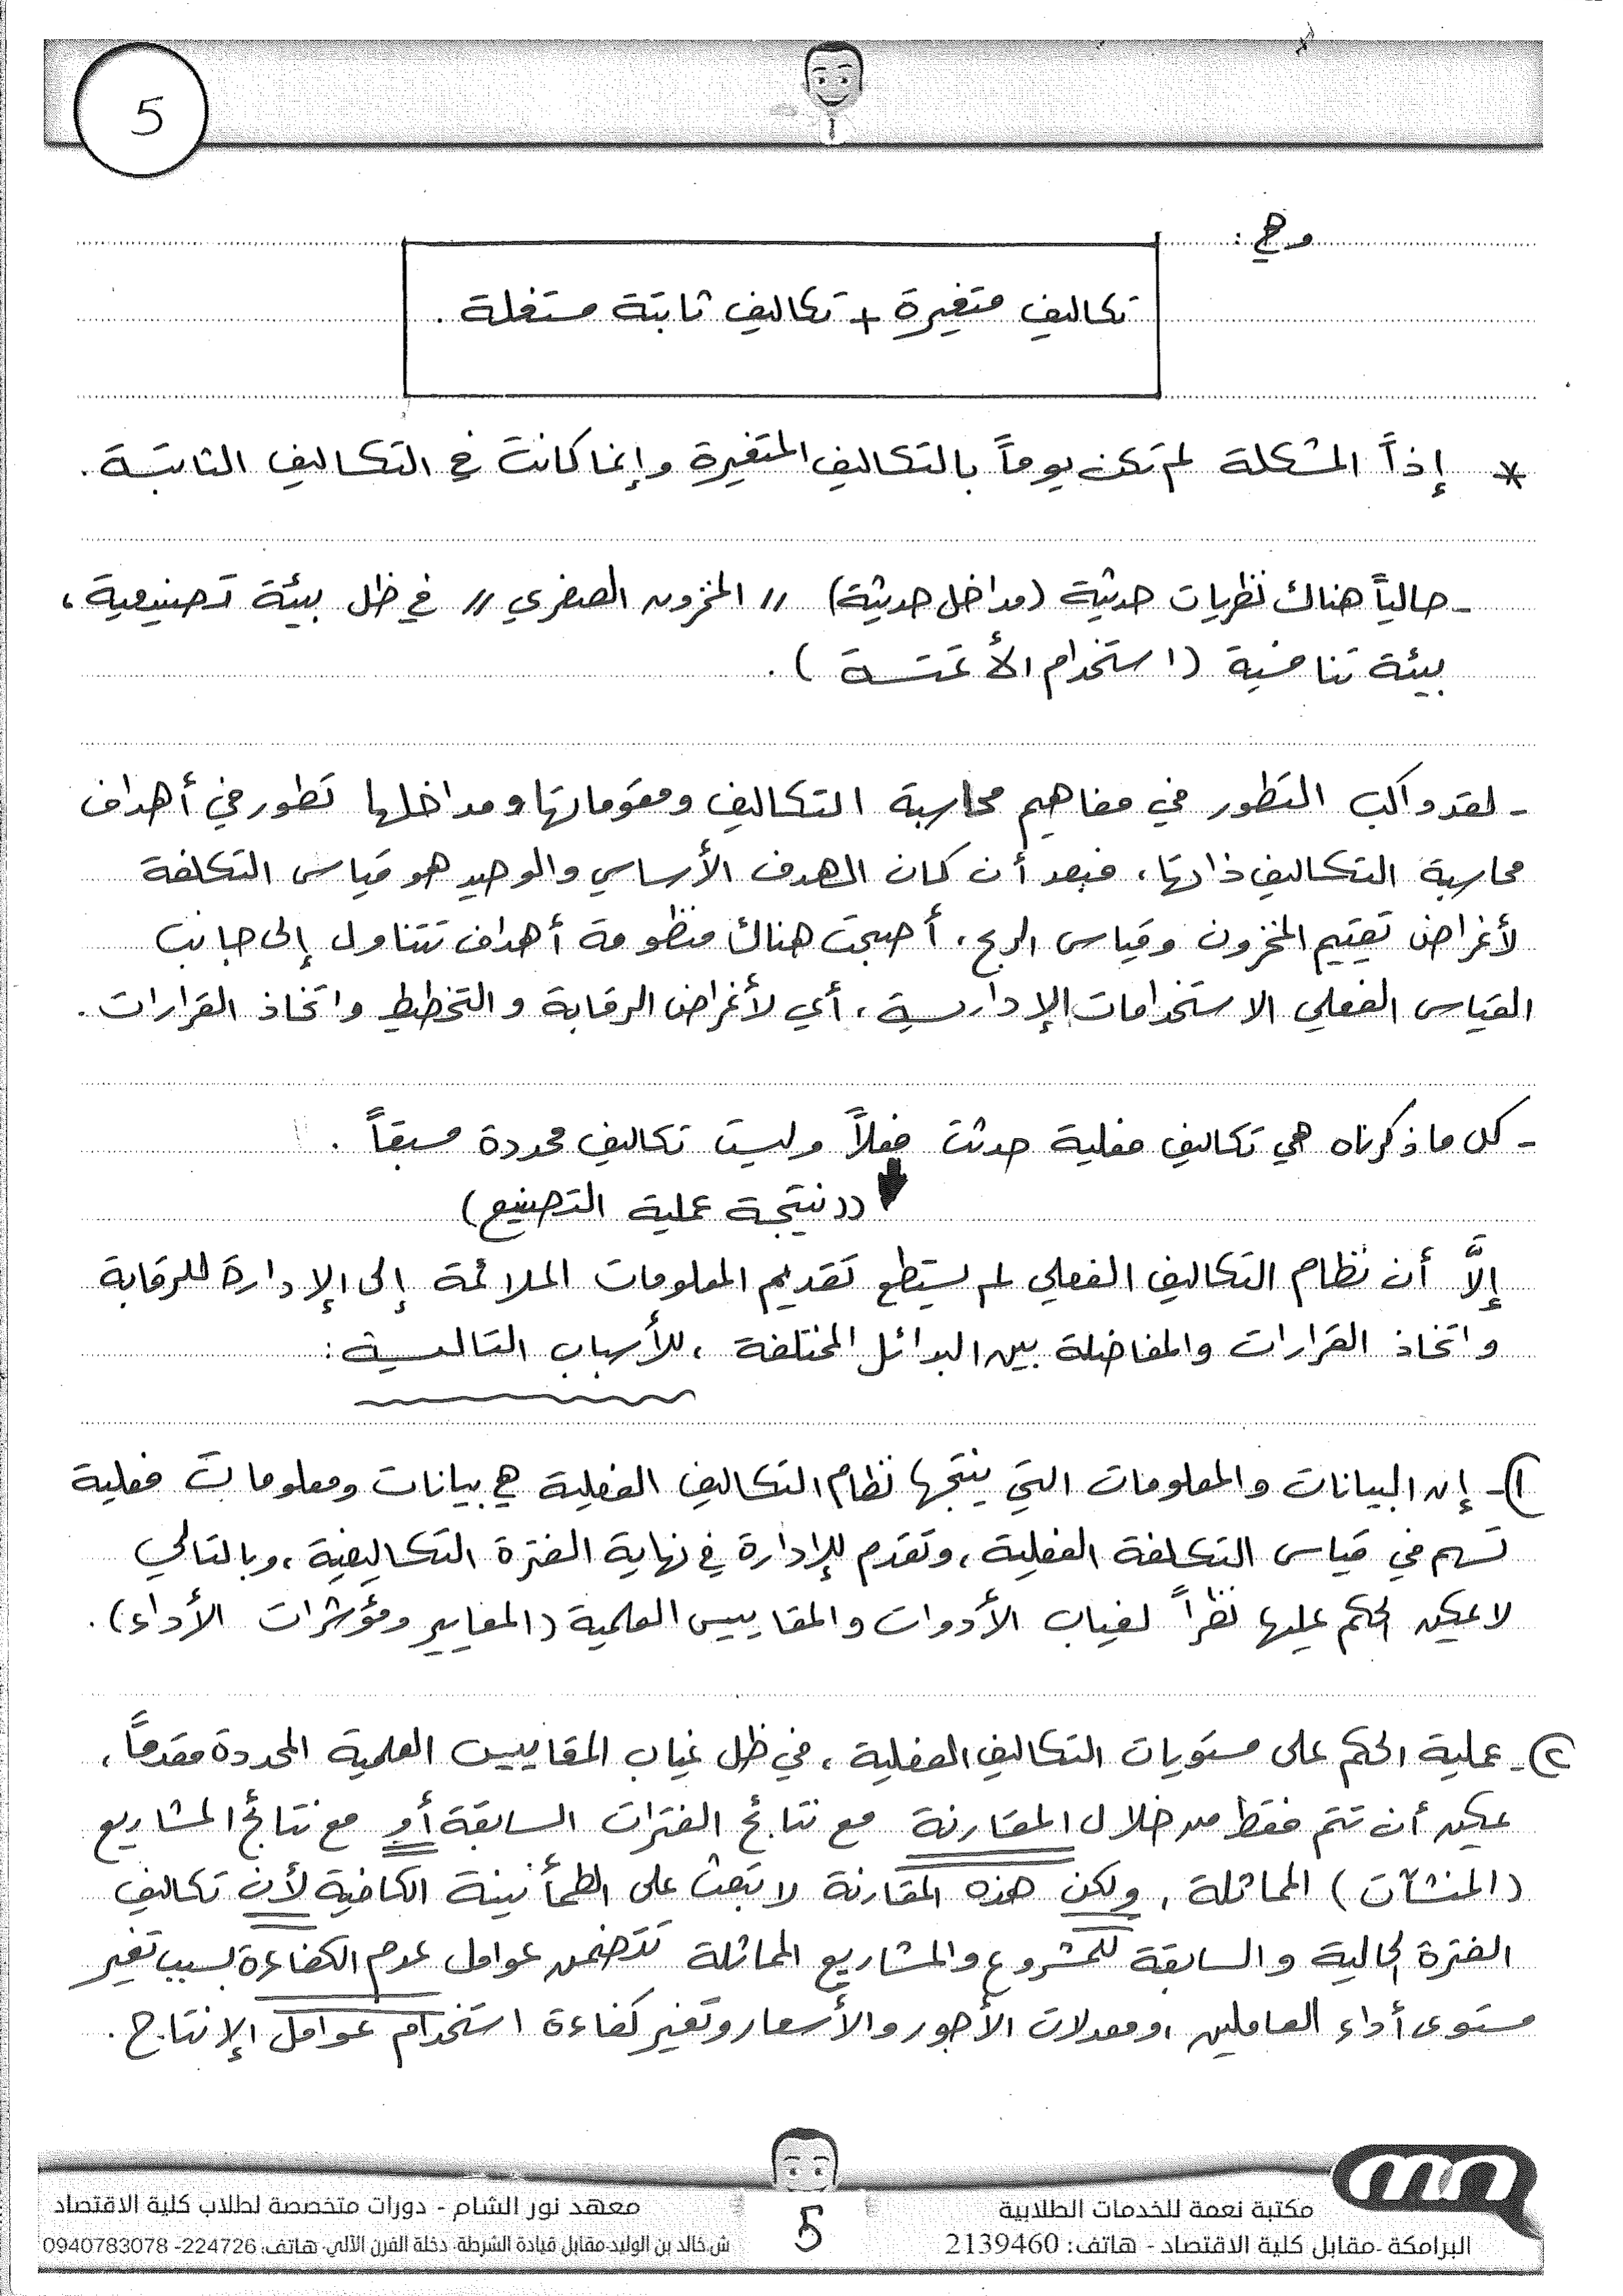 5
وهي :
تكاليف متغيرة + تكاليف ثابتة مستغلة .
* إذاً المشكلة لم تكن يوماً بالتكاليف المتغيرة وإنما كانت في التكاليف الثابتة .
- حالياً هناك نظريات حديثة (مداخل حديثة) // المخزون الصفري // في ظل بيئة تصنيعية ،
بيئة تنافسية (استخدام الأتمتة) .
- لقد واكب التطور في مفاهيم محاسبة التكاليف ومقوماتها ومداخلها تطور في أهداف
محاسبة التكاليف ذاتها ، فبعد أن كان الهدف الأساسي والوحيد هو قياس التكلفة
لأغراض تقييم المخزون وقياس الربح ، أصبحت هناك منظومة أهداف تتناول إلى جانب
القياس الفعلي الاستخدامات الإدارية ، أي لأغراض الرقابة والتخطيط واتخاذ القرارات .
- كل ما ذكرناه هي تكاليف فعلية حدثت فعلاً وليست تكاليف محددة مسبقاً .
((نتيجة عملية التصنيع)
إلَّا أن نظام التكاليف الفعلي لم يستطع تقديم المعلومات الملائمة إلى الإدارة للرقابة
واتخاذ القرارات والمفاضلة بين البدائل المختلفة ، للأسباب التالية :
١)- إن البيانات والمعلومات التي ينتجها نظام التكاليف الفعلية هي بيانات ومعلومات فعلية
تسهم في قياس التكلفة الفعلية ، وتقدم للإدارة في نهاية الفترة التكاليفية ، وبالتالي
لا يمكن الحكم عليها نظراً لغياب الأدوات والمقاييس العلمية (المعايير ومؤشرات الأداء) .
٢)- عملية الحكم على مستويات التكاليف الفعلية ، في ظل غياب المقاييس العلمية المحددة مقدماً ،
يمكن أن تتم فقط من خلال المقارنة مع نتائج الفترات السابقة أو مع نتائج المشاريع
(المنشآت) المماثلة ، ولكن هذه المقارنة لا تبعث على الطمأنينة الكافية لأن تكاليف
الفترة الحالية والسابقة للمشروع والمشاريع المماثلة تتضمن عوامل عدم الكفاءة بسبب تغير
مستوى أداء العاملين ، ومعدلات الأجور والأسعار وتغير كفاءة استخدام عوامل الإنتاج .
مكتبة نعمة للخدمات الطلابية
البرامكة -مقابل كلية الاقتصاد - هاتف: 2139460
5
معهد نور الشام - دورات متخصصة لطلاب كلية الاقتصاد
ش.خالد بن الوليد-مقابل قيادة الشرطة- دخلة الفرن الآلي- هاتف: 224726- 0940783078